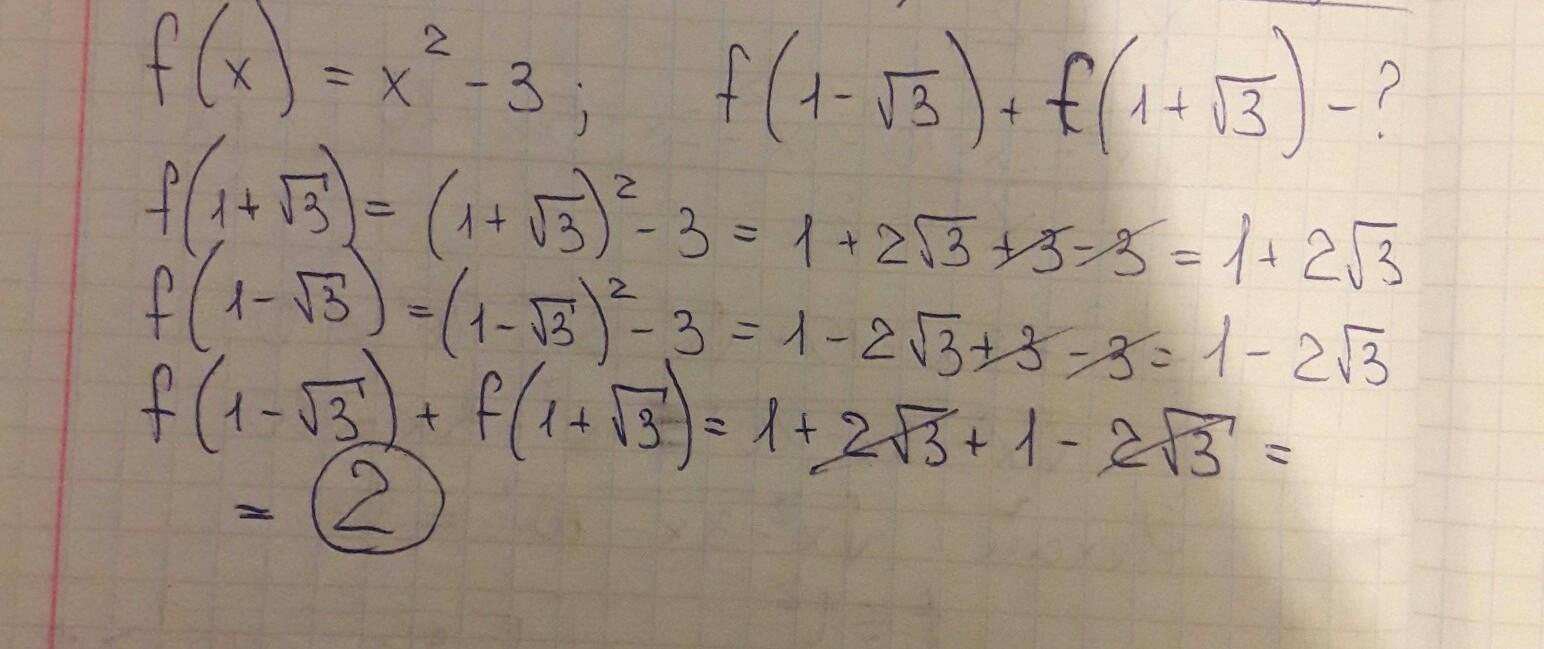 f(x) = x² - 3; f(1 - √3) + f(1 + √3) - ?
f(1 + √3) = (1 + √3)² - 3 = 1 + 2√3 + 3 - 3 = 1 + 2√3
f(1 - √3) = (1 - √3)² - 3 = 1 - 2√3 + 3 - 3 = 1 - 2√3
f(1 - √3) + f(1 + √3) = 1 + 2√3 + 1 - 2√3 =
= 2